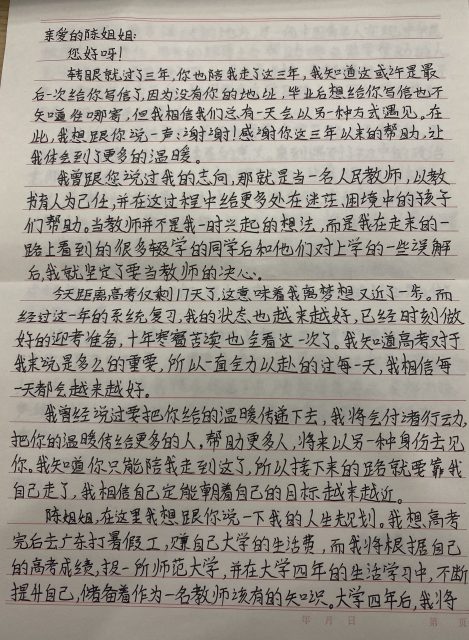 亲爱的陈姐姐:
您好呀!
转眼就过了三年,你也陪我走了这三年,我知道这或许是最
后一次给你写信了,因为没有你的地址,毕业后想给你写信也不
知道往哪寄,但我相信我们总有一天会以另一种方式遇见。在
此,我想跟你说一声:谢谢!感谢你这三年以来的帮助,让
我体会到了更多的温暖。
我曾跟您说过我的志向,那就是当一名人民教师,以教
书育人为己任,并在这过程中给更多处在迷茫、困境中的孩子
们帮助。当教师并不是我一时兴起的想法,而是我在走来的一
路上看到的很多辍学的同学后和他们对上学的一些误解
后,我就坚定了要当教师的决心。
今天距离高考仅剩17天了,这意味着我离梦想又近了一步。而
经过这一年的系统复习,我的状态也越来越好,已经时刻做
好的迎考准备,十年寒窗苦读也全看这一次了。我知道高考对于
我来说是多么的重要,所以一直全力以赴的过每一天,我相信每
一天都会越来越好。
我曾经说过要把你给的温暖传递下去,我将会付诸行动,
把你的温暖传给更多的人,帮助更多人,将来以另一种身份去见
你。我知道你只能陪我走到这了,所以接下来的路就要靠我
自己走了,我相信自己定能朝着自己的目标越来越近。
陈姐姐,在这里我想跟你说一下我的人生规划。我想高考
完后去广东打暑假工,赚自己大学的生活费,而我将根据自己
的高考成绩,报一所师范大学,并在大学四年的生活学习中,不断
提升自己,储备着作为一名教师该有的知识。大学四年后,我将
年 月 日 第 页